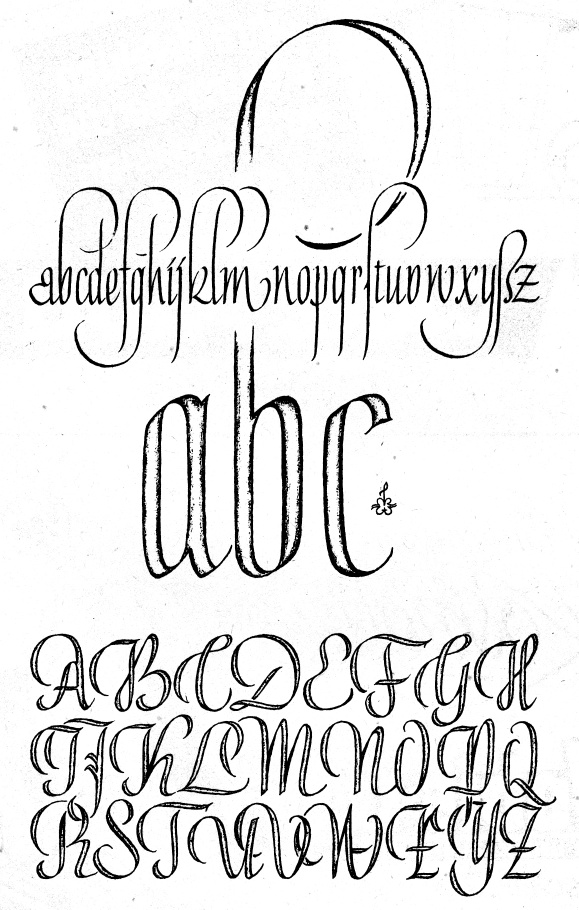 abcdefghijklmnopqrstuvwxyßz
abc
ABCDEFGH
IJKLMNOPQ
RSTUVWXYZ